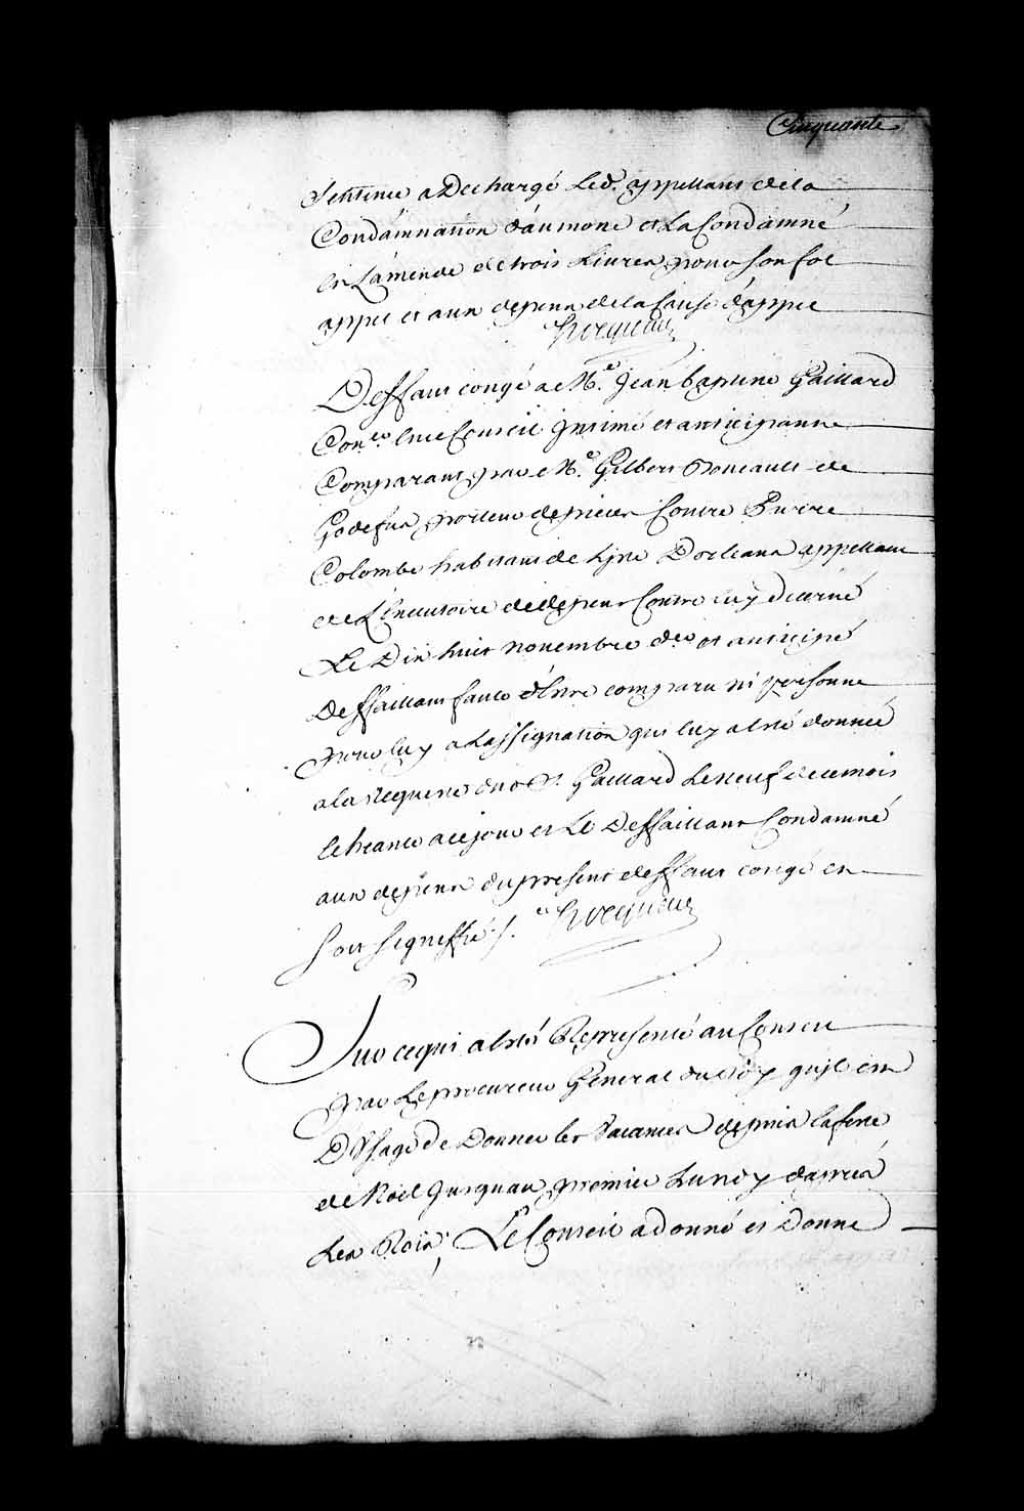 Cinquante
Sentence a Dechargé Led. appellant dela
Condamnaõn d'aumone et La Condamné
En L'amende de trois Livres pour son fol
appel et aux depens de la Cause d'appel
Deffaut congé a Me. Jean baptiste Gaillard
Conᵉʳ en ce Conseil Intimé et anticipant
Comparant par Me. Gilbert Boucault de
Godefus porteur de pieces Contre Pierre
Colombe habitant de Lisle Dorleans appellant
de L'Executoire de depens Contre luy decerné
Le Dix huit novembre dᵉʳ et anticipé
Deffaillant faute d'Estre comparu ni personne
pour luy a Lassignation qui luy a Esté donnée
a la Requeste dud. Sr. Gaillard Le neuf de ce mois
Echeante a ce jour et Le Deffaillant Condamné
aux depens du present deffaut congé et
Soit Signiffié ./.
Sur ce qui a Esté Representé au Conseil
par Le procureur General du Roy quil est
D'Usage de Donner les Vacances depuis la feste
de Noël Jusquau premier Lundy d'apres
Les Rois, Le Conseil a donné et Donne